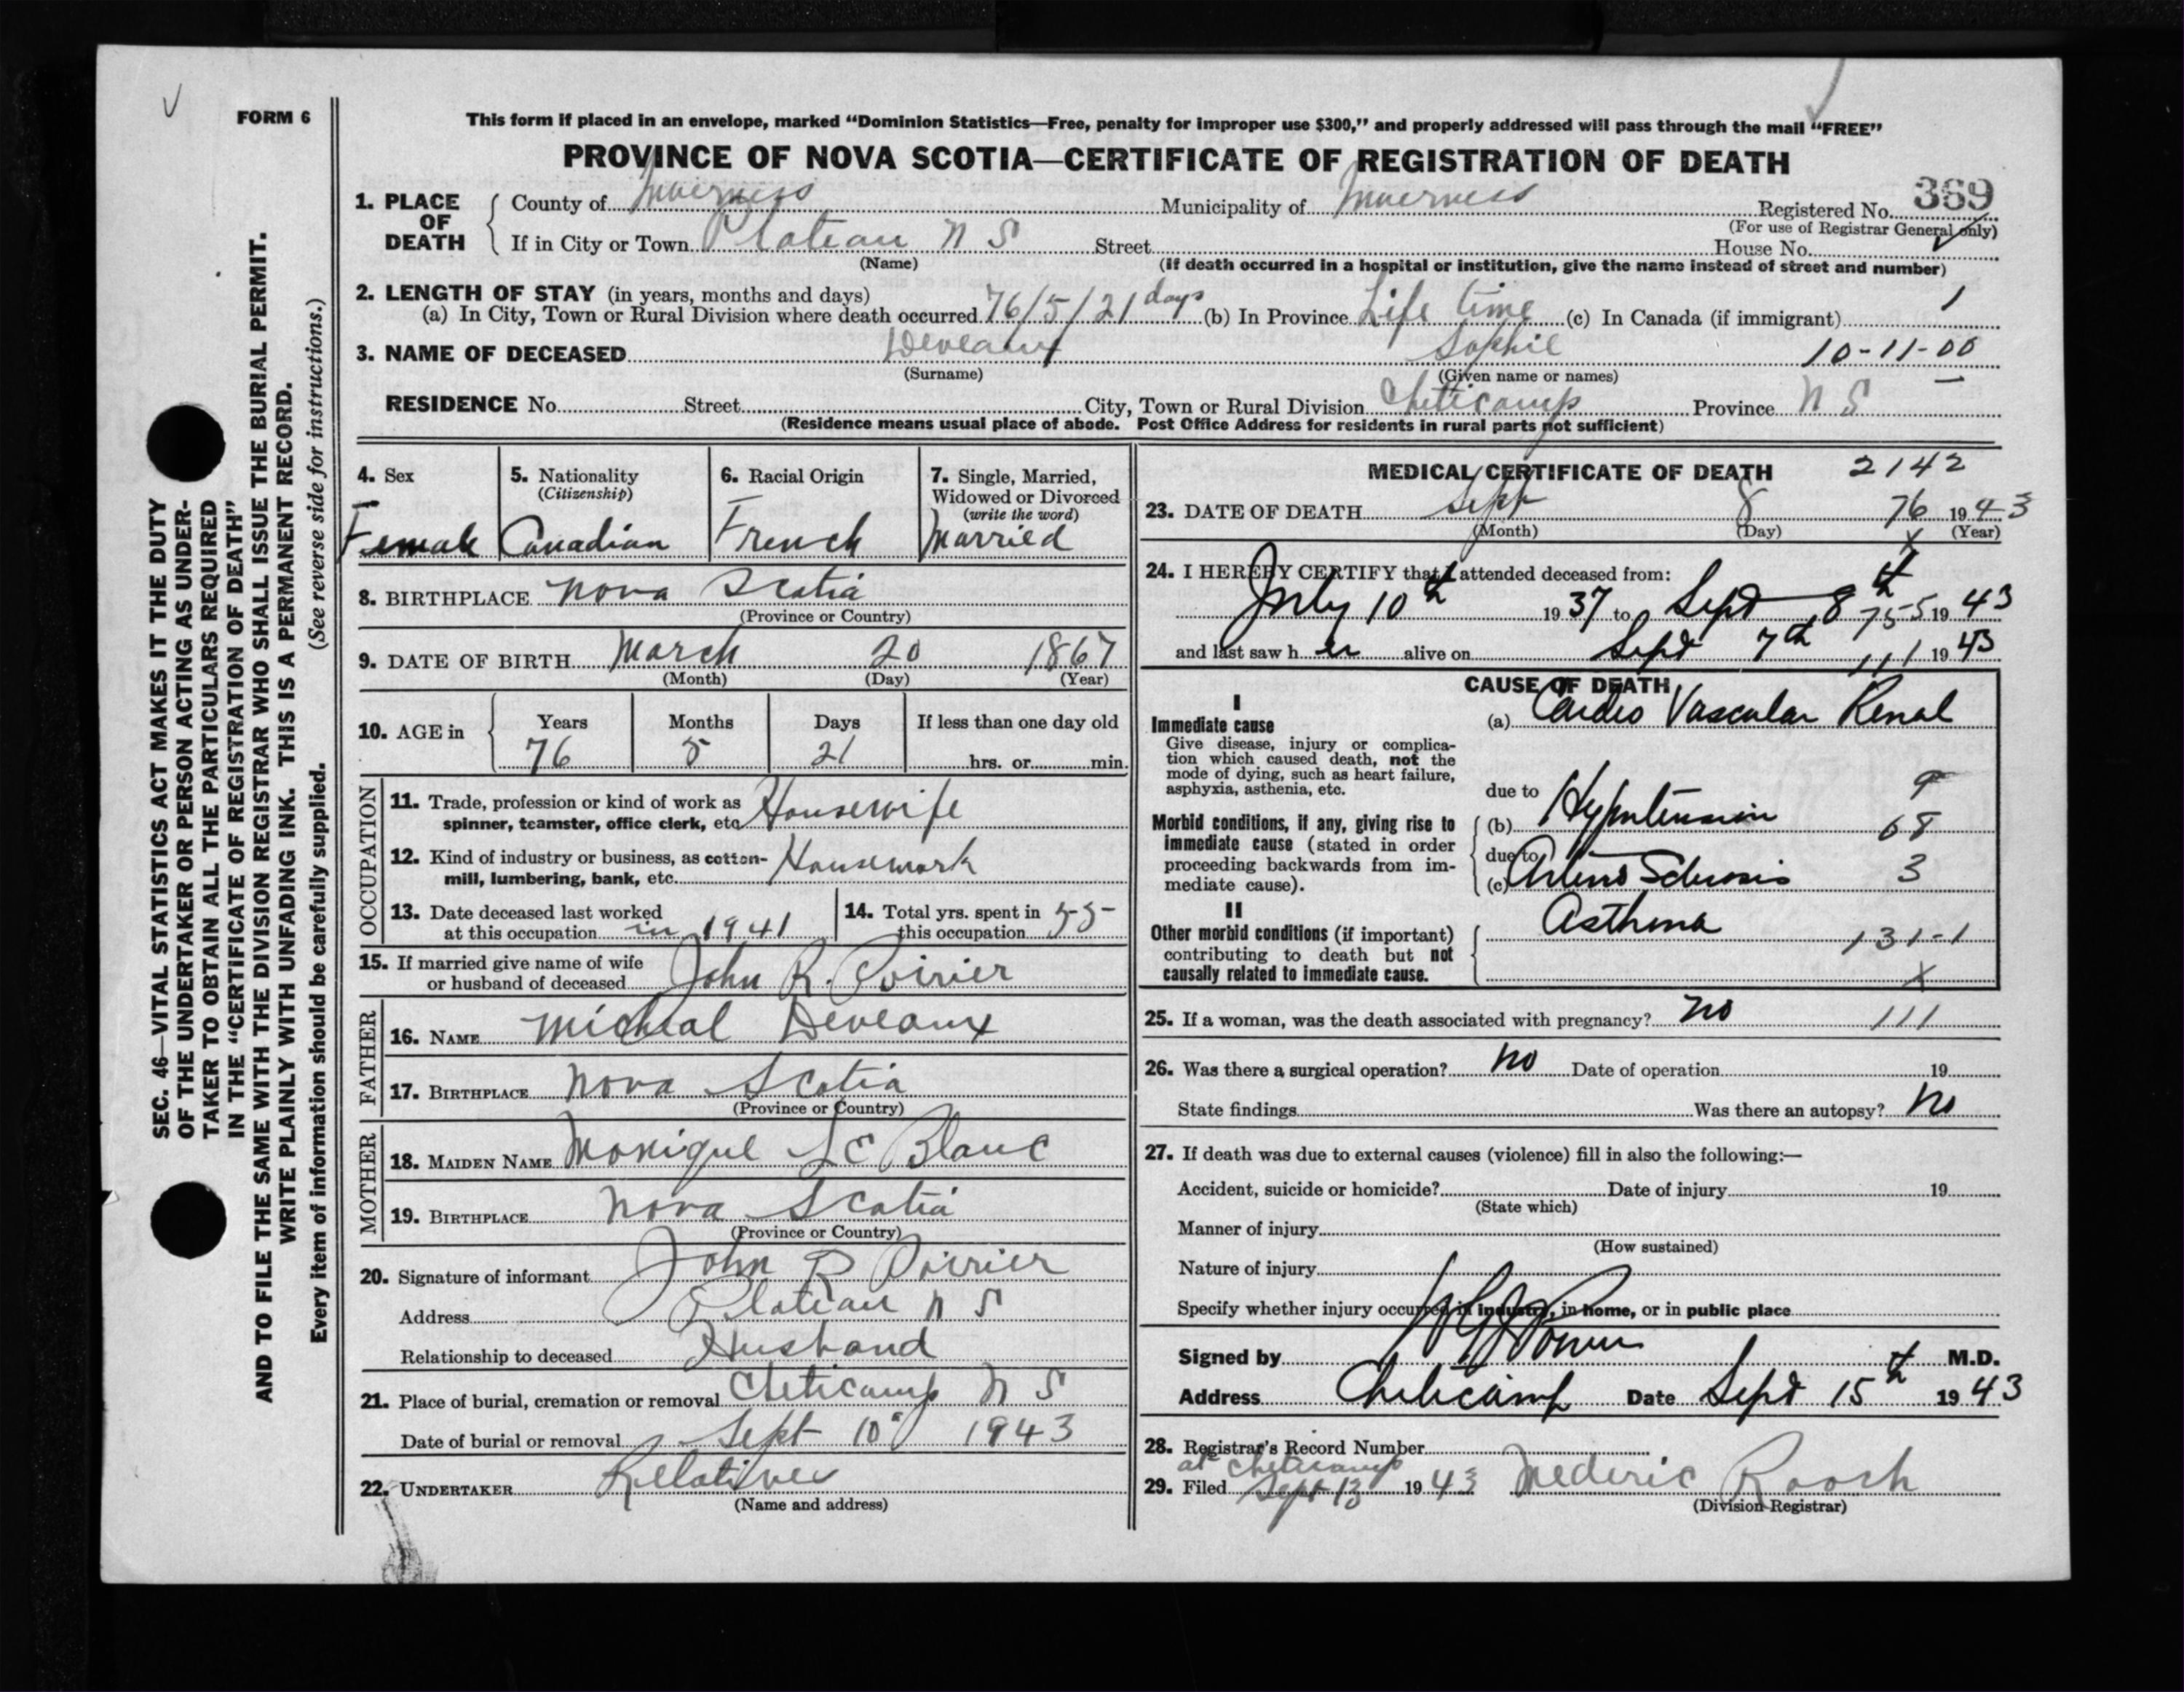 FORM 6
This form if placed in an envelope, marked "Dominion Statistics—Free, penalty for improper use $300," and properly addressed will pass through the mail "FREE"
PROVINCE OF NOVA SCOTIA—CERTIFICATE OF REGISTRATION OF DEATH
1. PLACE OF DEATH
County of Inverness Municipality of Inverness Registered No. 369
(For use of Registrar General only)
If in City or Town Plateau N S Street House No.
(Name) (If death occurred in a hospital or institution, give the name instead of street and number)
2. LENGTH OF STAY (in years, months and days)
(a) In City, Town or Rural Division where death occurred 76/5/21 days (b) In Province Life time (c) In Canada (if immigrant) 1
3. NAME OF DECEASED Deveaux Sophie 10-11-00
(Surname) (Given name or names)
RESIDENCE No. Street City, Town or Rural Division Cheticamp Province N S
(Residence means usual place of abode. Post Office Address for residents in rural parts not sufficient)
4. Sex Female
5. Nationality (Citizenship) Canadian
6. Racial Origin French
7. Single, Married, Widowed or Divorced (write the word) Married
8. BIRTHPLACE Nova Scotia
(Province or Country)
9. DATE OF BIRTH March 20 1867
(Month) (Day) (Year)
10. AGE in Years Months Days If less than one day old
76 5 21 hrs. or min.
OCCUPATION
11. Trade, profession or kind of work as
spinner, teamster, office clerk, etc. Housewife
12. Kind of industry or business, as cotton-
mill, lumbering, bank, etc. Housework
13. Date deceased last worked
at this occupation in 1941
14. Total yrs. spent in
this occupation 55
15. If married give name of wife
or husband of deceased John R. Poirier
FATHER
16. NAME Micheal Deveaux
17. BIRTHPLACE Nova Scotia
(Province or Country)
MOTHER
18. MAIDEN NAME Monique Le Blanc
19. BIRTHPLACE Nova Scotia
(Province or Country)
20. Signature of informant John R Poirier
Address Plateau N S
Relationship to deceased Husband
21. Place of burial, cremation or removal Cheticamp N S
Date of burial or removal Sept 10 1943
22. UNDERTAKER Relatives
(Name and address)
MEDICAL CERTIFICATE OF DEATH 2142
23. DATE OF DEATH Sept 8 76 1943
(Month) (Day) (Year)
x
24. I HEREBY CERTIFY that I attended deceased from:
July 10th 1937 to Sept 8th 75-5 1943
and last saw her alive on Sept 7th 111 1943
CAUSE OF DEATH
I
Immediate cause (a) Cardio Vascular Renal
Give disease, injury or complica-
tion which caused death, not the
mode of dying, such as heart failure,
asphyxia, asthenia, etc. due to 9
Morbid conditions, if any, giving rise to
immediate cause (stated in order
proceeding backwards from im-
mediate cause).
(b) Hypertension 68
due to
(c) Arterio Sclerosis 3
II
Other morbid conditions (if important)
contributing to death but not
causally related to immediate cause.
Asthma
131-1
x
25. If a woman, was the death associated with pregnancy? No 111
26. Was there a surgical operation? No Date of operation 19
State findings Was there an autopsy? No
27. If death was due to external causes (violence) fill in also the following:—
Accident, suicide or homicide? Date of injury 19
(State which)
Manner of injury
(How sustained)
Nature of injury
Specify whether injury occurred in industry, in home, or in public place
Signed by M.D.
Address Cheticamp Date Sept 15th 1943
28. Registrar's Record Number
at Cheticamp
29. Filed Sept 13 1943 Mederic Roach
(Division Registrar)
SEC. 46—VITAL STATISTICS ACT MAKES IT THE DUTY
OF THE UNDERTAKER OR PERSON ACTING AS UNDER-
TAKER TO OBTAIN ALL THE PARTICULARS REQUIRED
IN THE "CERTIFICATE OF REGISTRATION OF DEATH"
AND TO FILE THE SAME WITH THE DIVISION REGISTRAR WHO SHALL ISSUE THE BURIAL PERMIT.
WRITE PLAINLY WITH UNFADING INK. THIS IS A PERMANENT RECORD.
Every item of information should be carefully supplied. (See reverse side for instructions.)